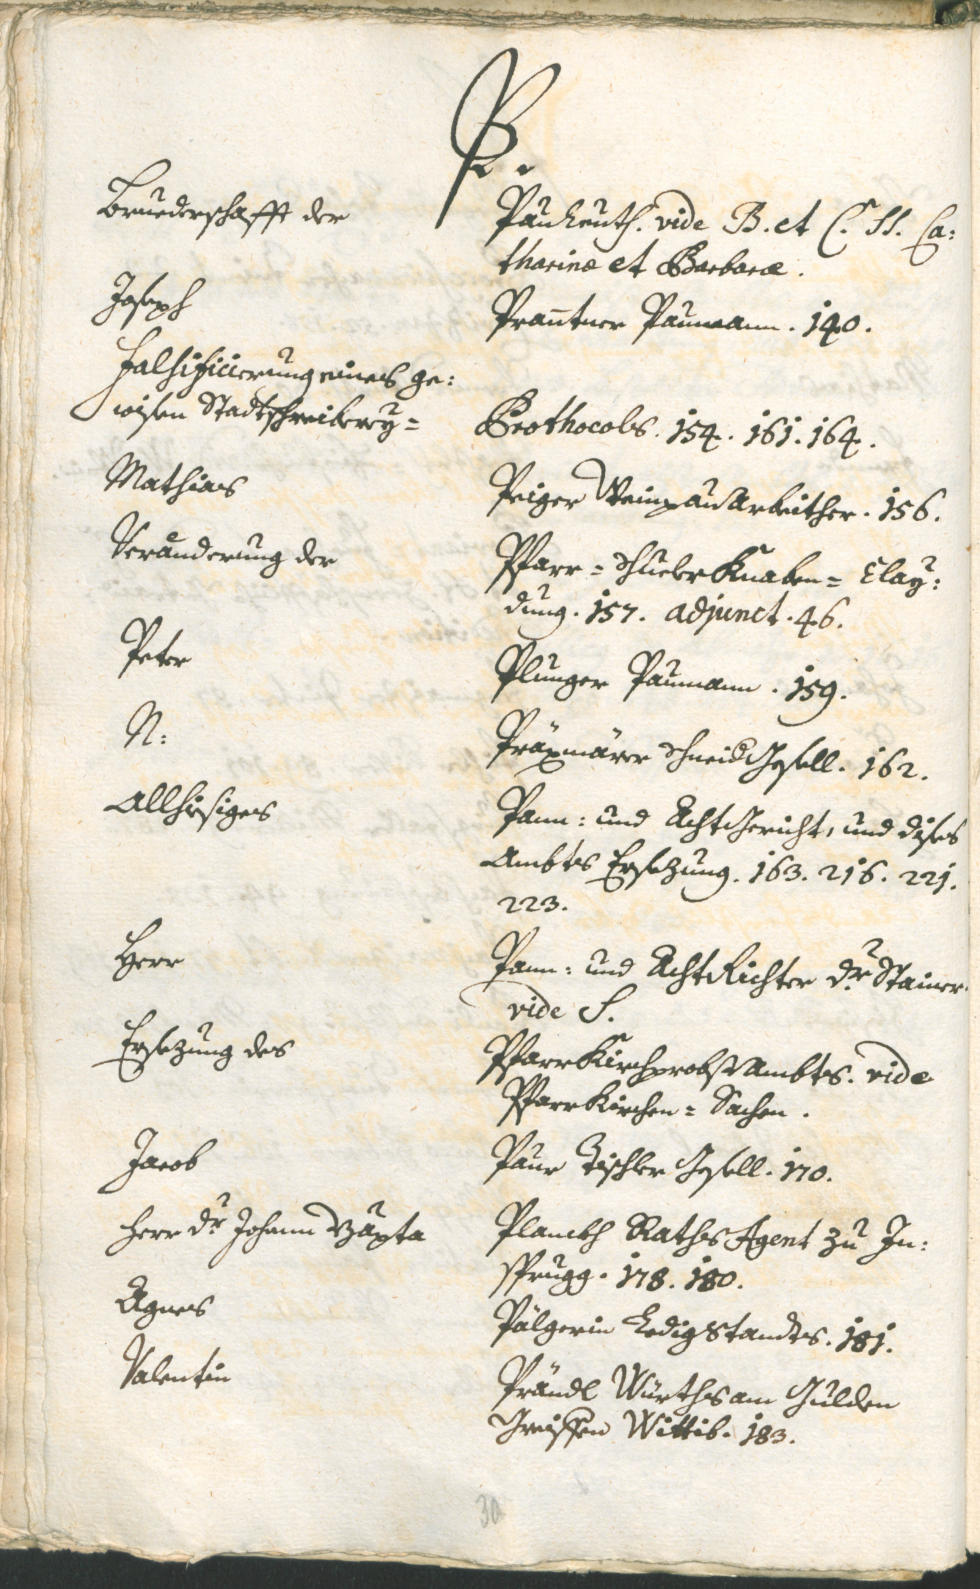 P.
Bruederschafft der
Pauleuth. vide B. et C. SS. Ca:
tharinæ et Barbaræ.
Joseph
Pranttner Paumann. 140.
Falsificierung eines ge:
wisen Stadtschreiberey=
Prothocols. 154. 161. 164.
Mathias
Peiger Weinpauarbeither. 156.
Veränderung der
Pfarr=Schuelerknaben=Clay:
dung. 157. adjunct. 46.
Peter
Plunger Paumann. 159.
N:
Präxmärer Schneidgesell. 162.
Allhisiges
Pann: und Achtgericht, und dises
Ambtes Ersezung. 163. 216. 221.
223.
Herr
Pann: und Achtrichter Dr. Stainer
vide S.
Ersezung des
Pfarrkirchprobstambtes. vide
Pfarrkirchen=Sachen.
Jacob
Paur Tischler Gesell. 170.
Herr Dr. Johann Bapta
Planckh Raths Agent zu In:
sprugg. 178. 180.
Agnes
Pälgerin Ledig Standts. 181.
Valentin
Prändl Würths am Gulden
Greiffen Wittib. 183.
30